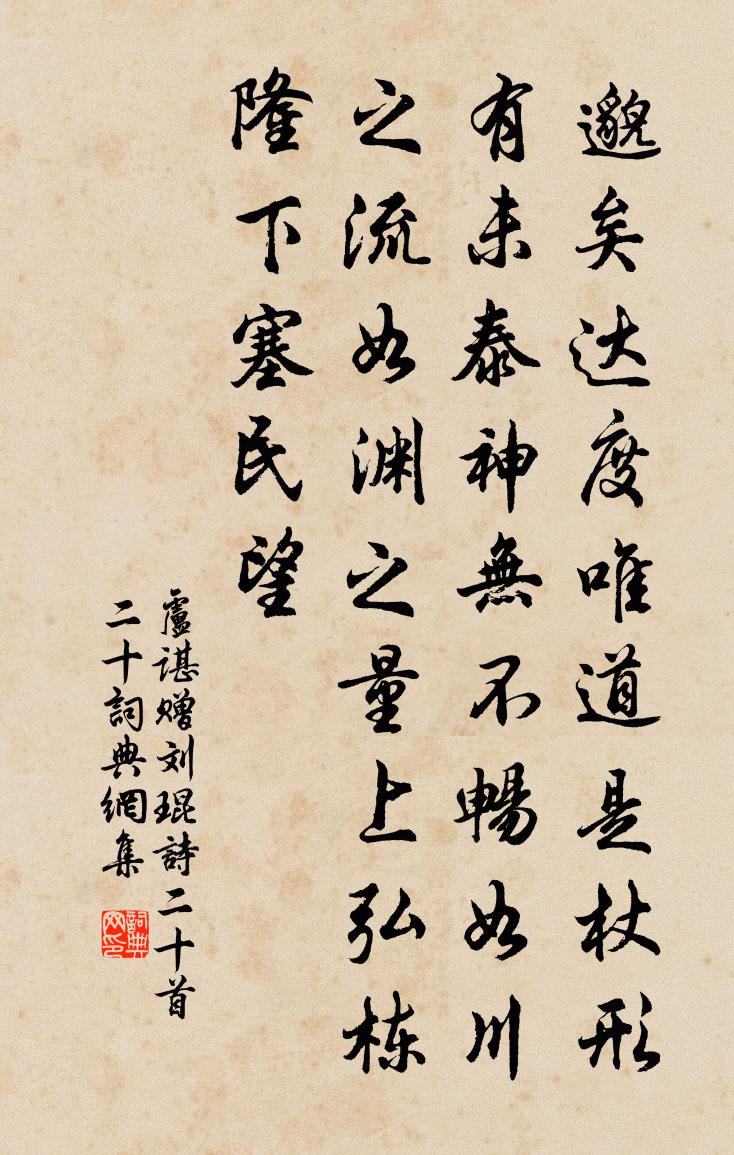 邈矣达度唯道是杖形
有未泰神無不暢如川
之流如渊之量上弘栋
隆下塞民望
盧諶赠刘琨詩二十首
二十詞典網集
詞典网印